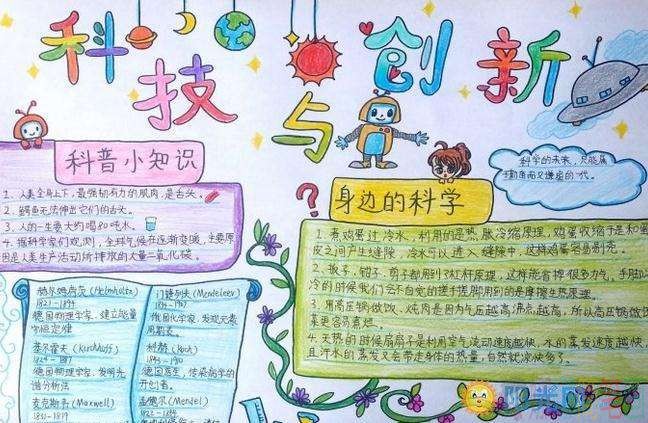 科技与创新
科普小知识
1、人类全身上下,最强韧有力的肌肉,是舌头。
2、鳄鱼无法伸出它们的舌头。
3、人的一生要大约喝80吨水。
4、据科学家们观测,全球气候在逐渐变暖,主要原
因是人类生产活动所排放的大量二氧化碳。
赫尔姆霍茨(Helmholtz)
1821-1894
德国物理学家,建立能量
守恒定律
基尔霍夫(Kirchhoff)
1824-1887
德国物理学家,发明光
谱分析法
麦克斯韦(Maxwell)
1831-1879
门捷列夫(Mendeleer)
1834-1907
俄国化学家,发现元素
周期表
柯赫(Koch)
1843-1910
德国医生,传染病学的
开创者
孟德尔(Mendel)
1822-1884
科学的未来,只能属
于勤奋而又谦虚的一代。
身边的科学
1、煮鸡蛋过冷水,利用的是热胀冷缩原理,鸡蛋收缩于是和蛋
皮之间产生缝隙,冷水可以进入缝隙中,这样鸡蛋容易剥壳。
2、筷子、钳子、剪刀都用到了杠杆原理,这样能省掉很多力气,手脚
冷的时候我们会不自觉的搓手搓脚用到的是摩擦生热原理。
3、用高压锅做饭、炖肉是因为气压越高沸点越高,所以高压锅做饭
菜更容易煮烂。
4、天热的时候扇扇子是利用空气流动速度越快,水的蒸发速度越快,
且汗水的蒸发又会带走身体的热量,自然就凉快多了。